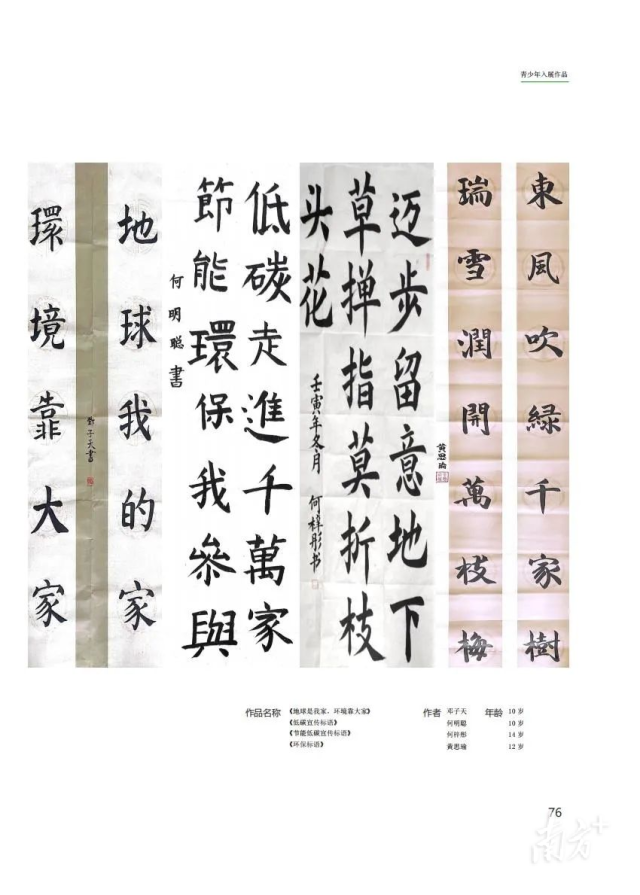 青少年入展作品
東風吹緑千家樹
瑞雪潤開萬枝梅
黄思瑜
迈步留意地下
草掸指莫折枝
头花
壬寅年冬月 何梓彤书
低碳走進千萬家
節能環保我參與
何明聪書
地球我的家
環境靠大家
邓子天書
作品名称 《地球是我家，环境靠大家》 作者 邓子天 年龄 10 岁
《低碳宣传标语》 何明聪 10 岁
《节能低碳宣传标语》 何梓彤 14 岁
《环保标语》 黄思瑜 12 岁
76
南方+